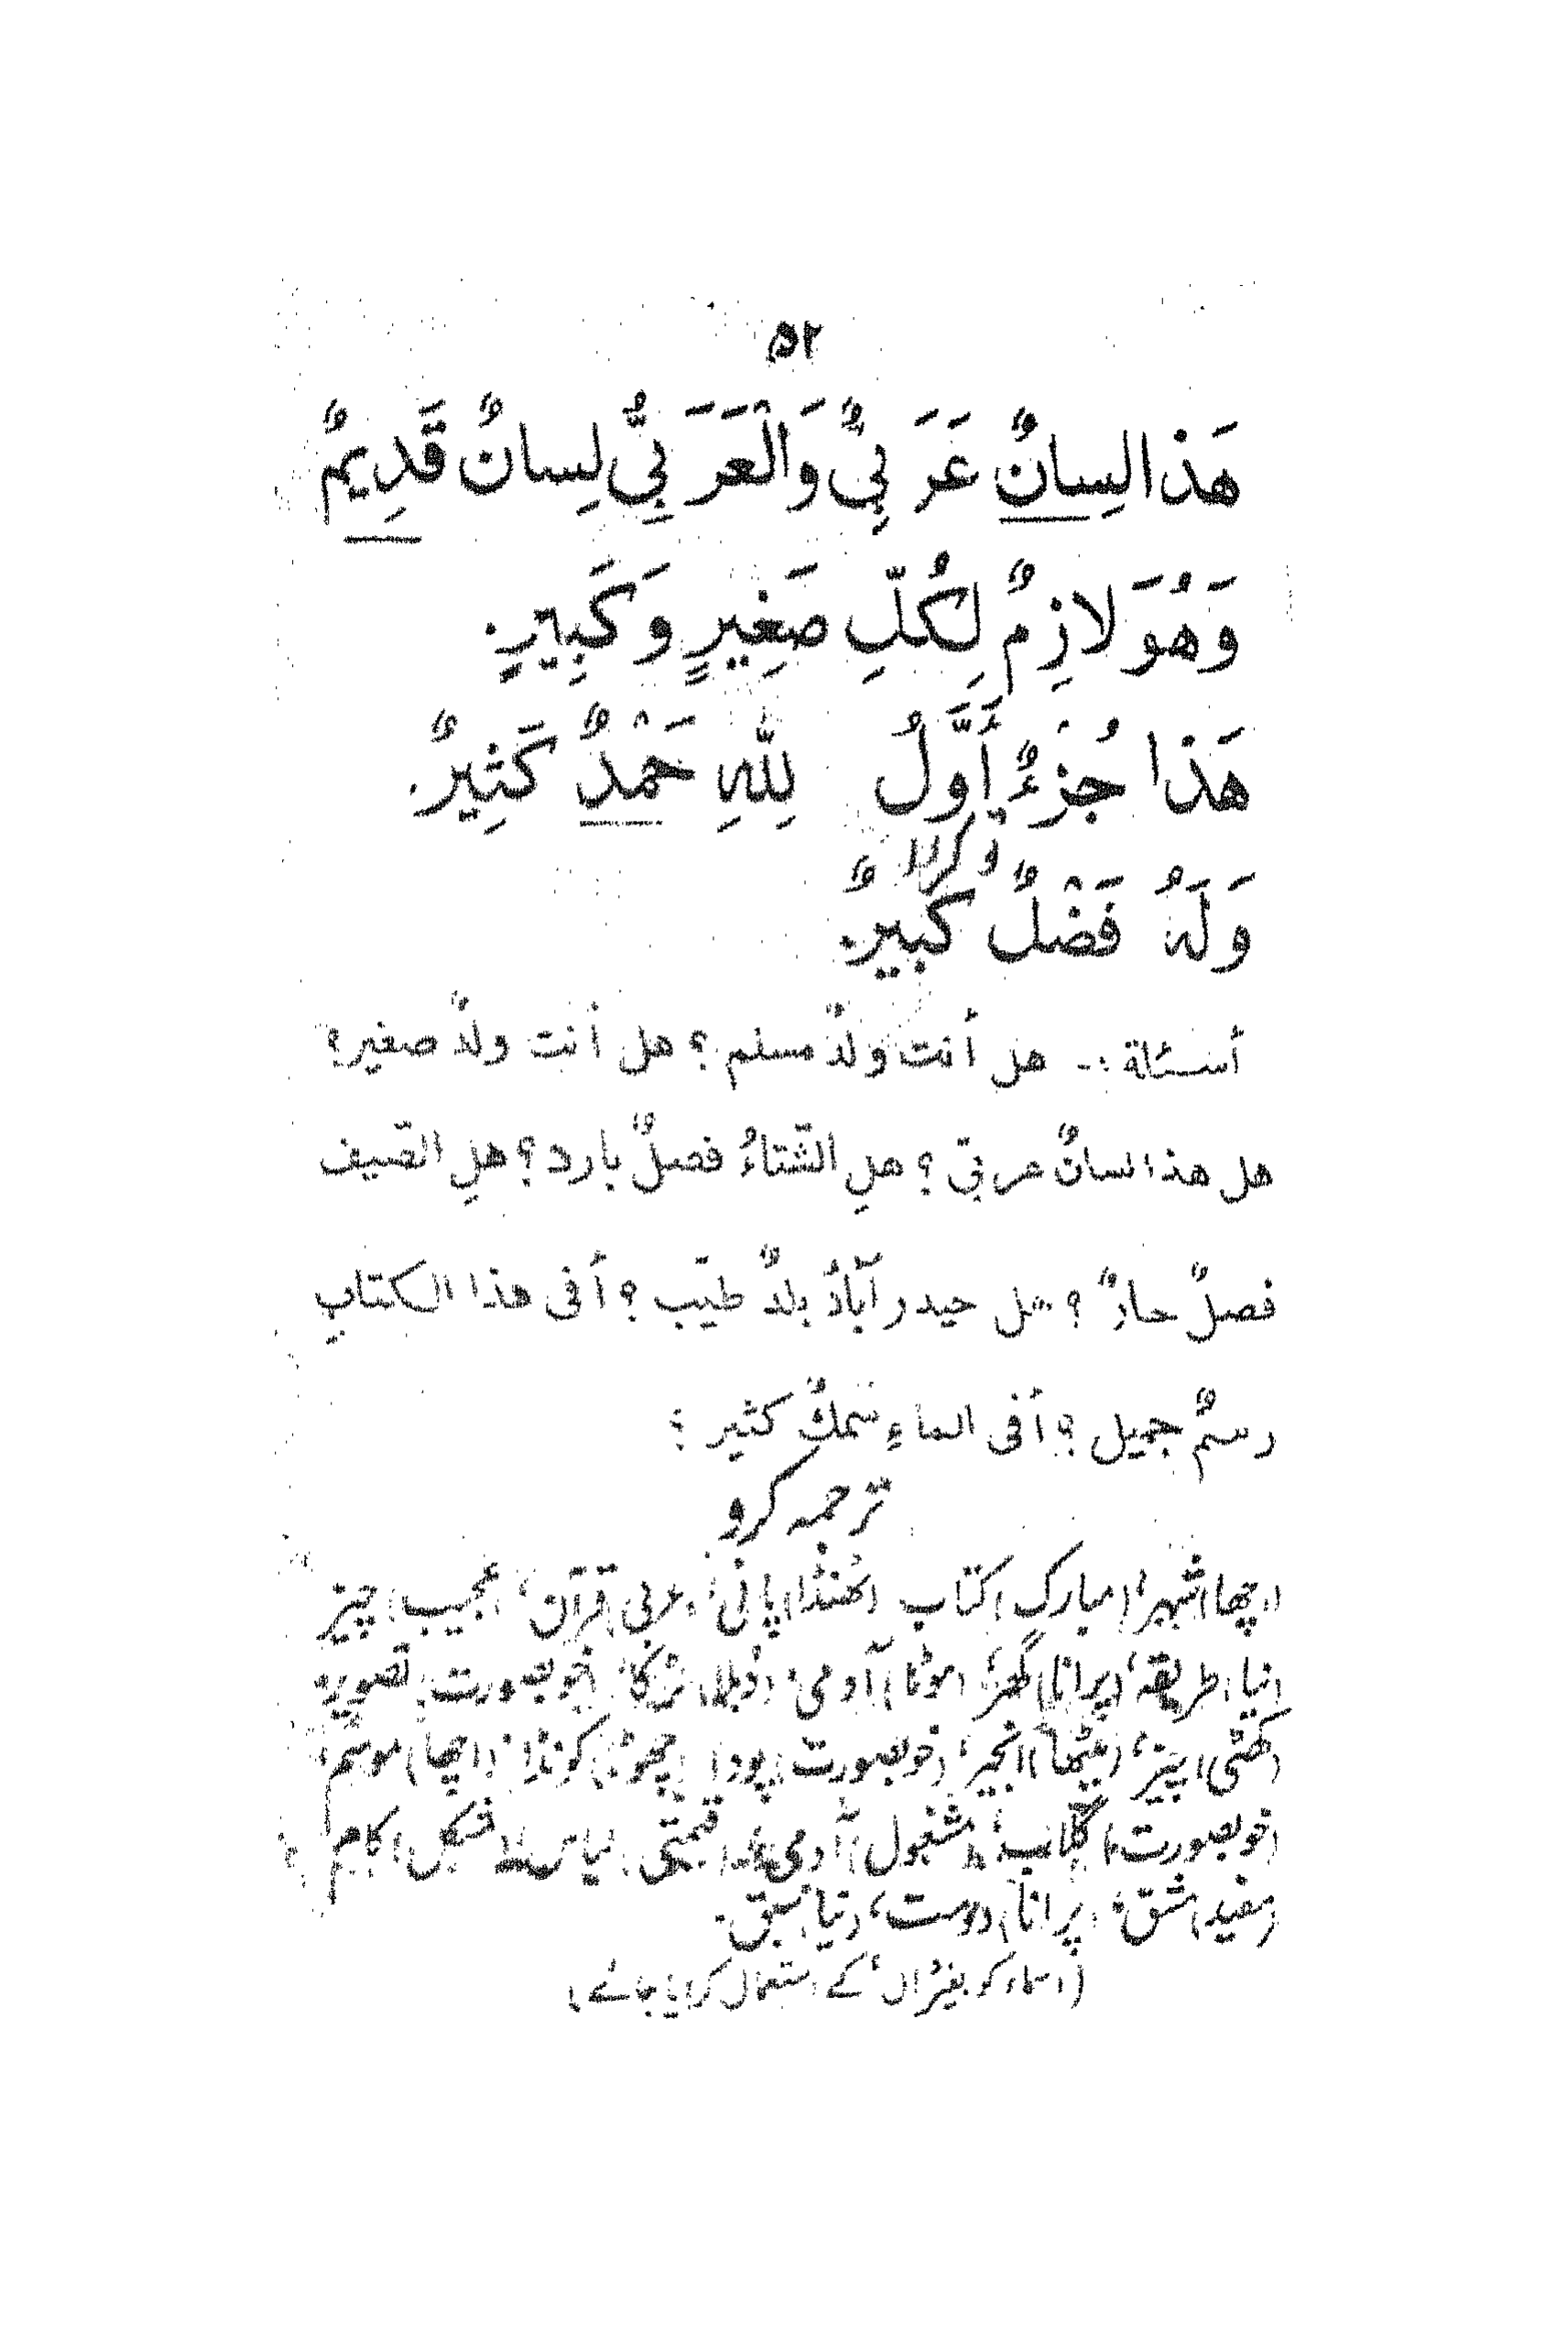 ۵۲
هَذا لِسانٌ عَرَبِيٌّ وَالْعَرَبِيُّ لِسانٌ قَدِيمٌ
وَهُوَ لازِمٌ لِكُلِّ صَغِيرٍ وَكَبِيرٍ.
هَذا جُزْءٌ أَوَّلُ لِلّهِ حَمْدٌ كَثِيرٌ.
وَلَهُ فَضْلٌ كَبيرٌ.
أسئلة :- هل أنت ولدٌ مسلم؟ هل أنت ولدٌ صغير؟
هل هذا لسانٌ عربيّ؟ هلِ الشّتاءُ فصلٌ بارد؟ هلِ الصّيف
فصلٌ حارٌّ؟ هل حيدرآبادُ بلدٌ طيّب؟ أفى هذا الكتابِ
رسمٌ جميل؟ أفى الماءِ سَمكٌ كثير؟
ترجمہ کرو
اچھا شہر، مبارک کتاب ٹھنڈا پانی، عربی قرآن، عجیب چیز
نیا طریقہ، پرانا گھر، موٹا آدمی، دُبلا لڑکا، خوبصورت تصویر،
کھٹی چیز، میٹھا انجیر، خوبصورت پودا اچھا موسم،
خوبصورت گلاب، مشغول آدمی، قیمتی لباس، مشکل کام
مفید مشق، پرانا دوست، نیا سبق.
(اسماء کو بغیر ال، کے استعمال کرایا جائے)